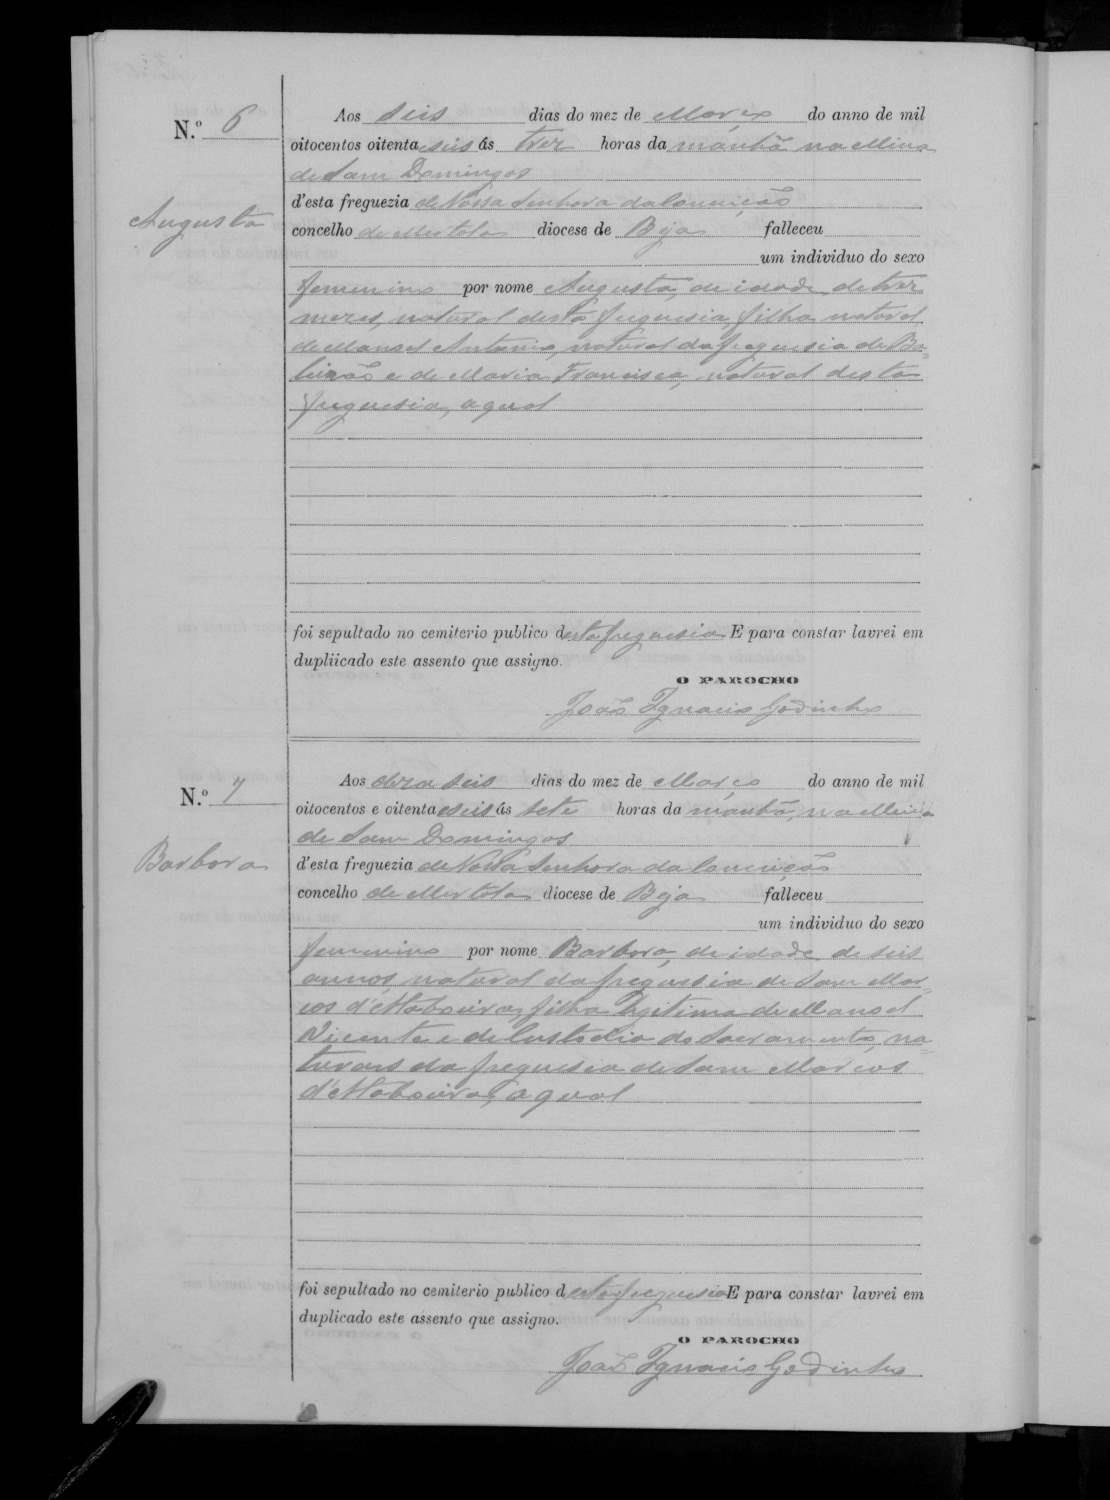 N.º 6
Augusta
Aos seis dias do mez de Março do anno de mil
oitocentos oitenta e seis ás trez horas da manhã na Mina
de Sam Domingos
d'esta freguezia de Nossa Senhora da Conceição
concelho de Mertola diocese de Beja falleceu
um individuo do sexo
femenino por nome Augusta, de idade de trez
mezes, natural desta freguesia, filha natural
de Manoel Antonio, natural da freguesia de Ba-
leizão e de Maria Francisca, natural desta
freguesia, a qual
foi sepultado no cemiterio publico desta freguesia E para constar lavrei em
dupliicado este assento que assigno.
O PAROCHO
João Ignacio Godinho
N.º 7
Barbora
Aos dezaseis dias do mez de Março do anno de mil
oitocentos e oitenta e seis ás sete horas da manhã, na Mina
de Sam Domingos
d'esta freguezia de Nossa Senhora da Conceição
concelho de Mertola diocese de Beja falleceu
um individuo do sexo
femenino por nome Barbora, de idade de seis
annos, natural da freguesia de Sam Mar-
cos d'Atabueira, filha legitima de Manoel
Vicente e de Custodia do Sacramento, na-
turaes da freguesia de Sam Marcos
d'Atabueira, a qual
foi sepultado no cemiterio publico desta freguesia E para constar lavrei em
duplicado este assento que assigno.
O PAROCHO
João Ignacio Godinho